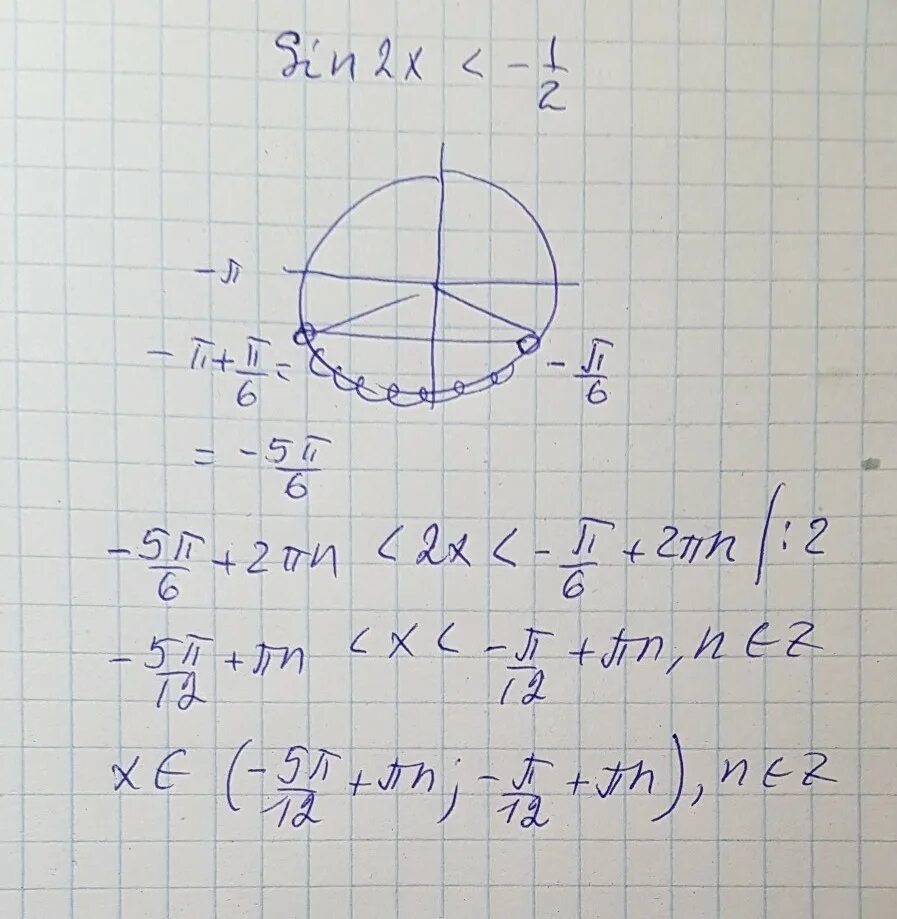 Sin2x < -1/2
-π
-π+π/6 =
-π/6
= -5π/6
-5π/6 + 2πn < 2x < -π/6 + 2πn |:2
-5π/12 + πn < x < -π/12 + πn, n ∈ Z
x ∈ (-5π/12 + πn; -π/12 + πn), n ∈ Z